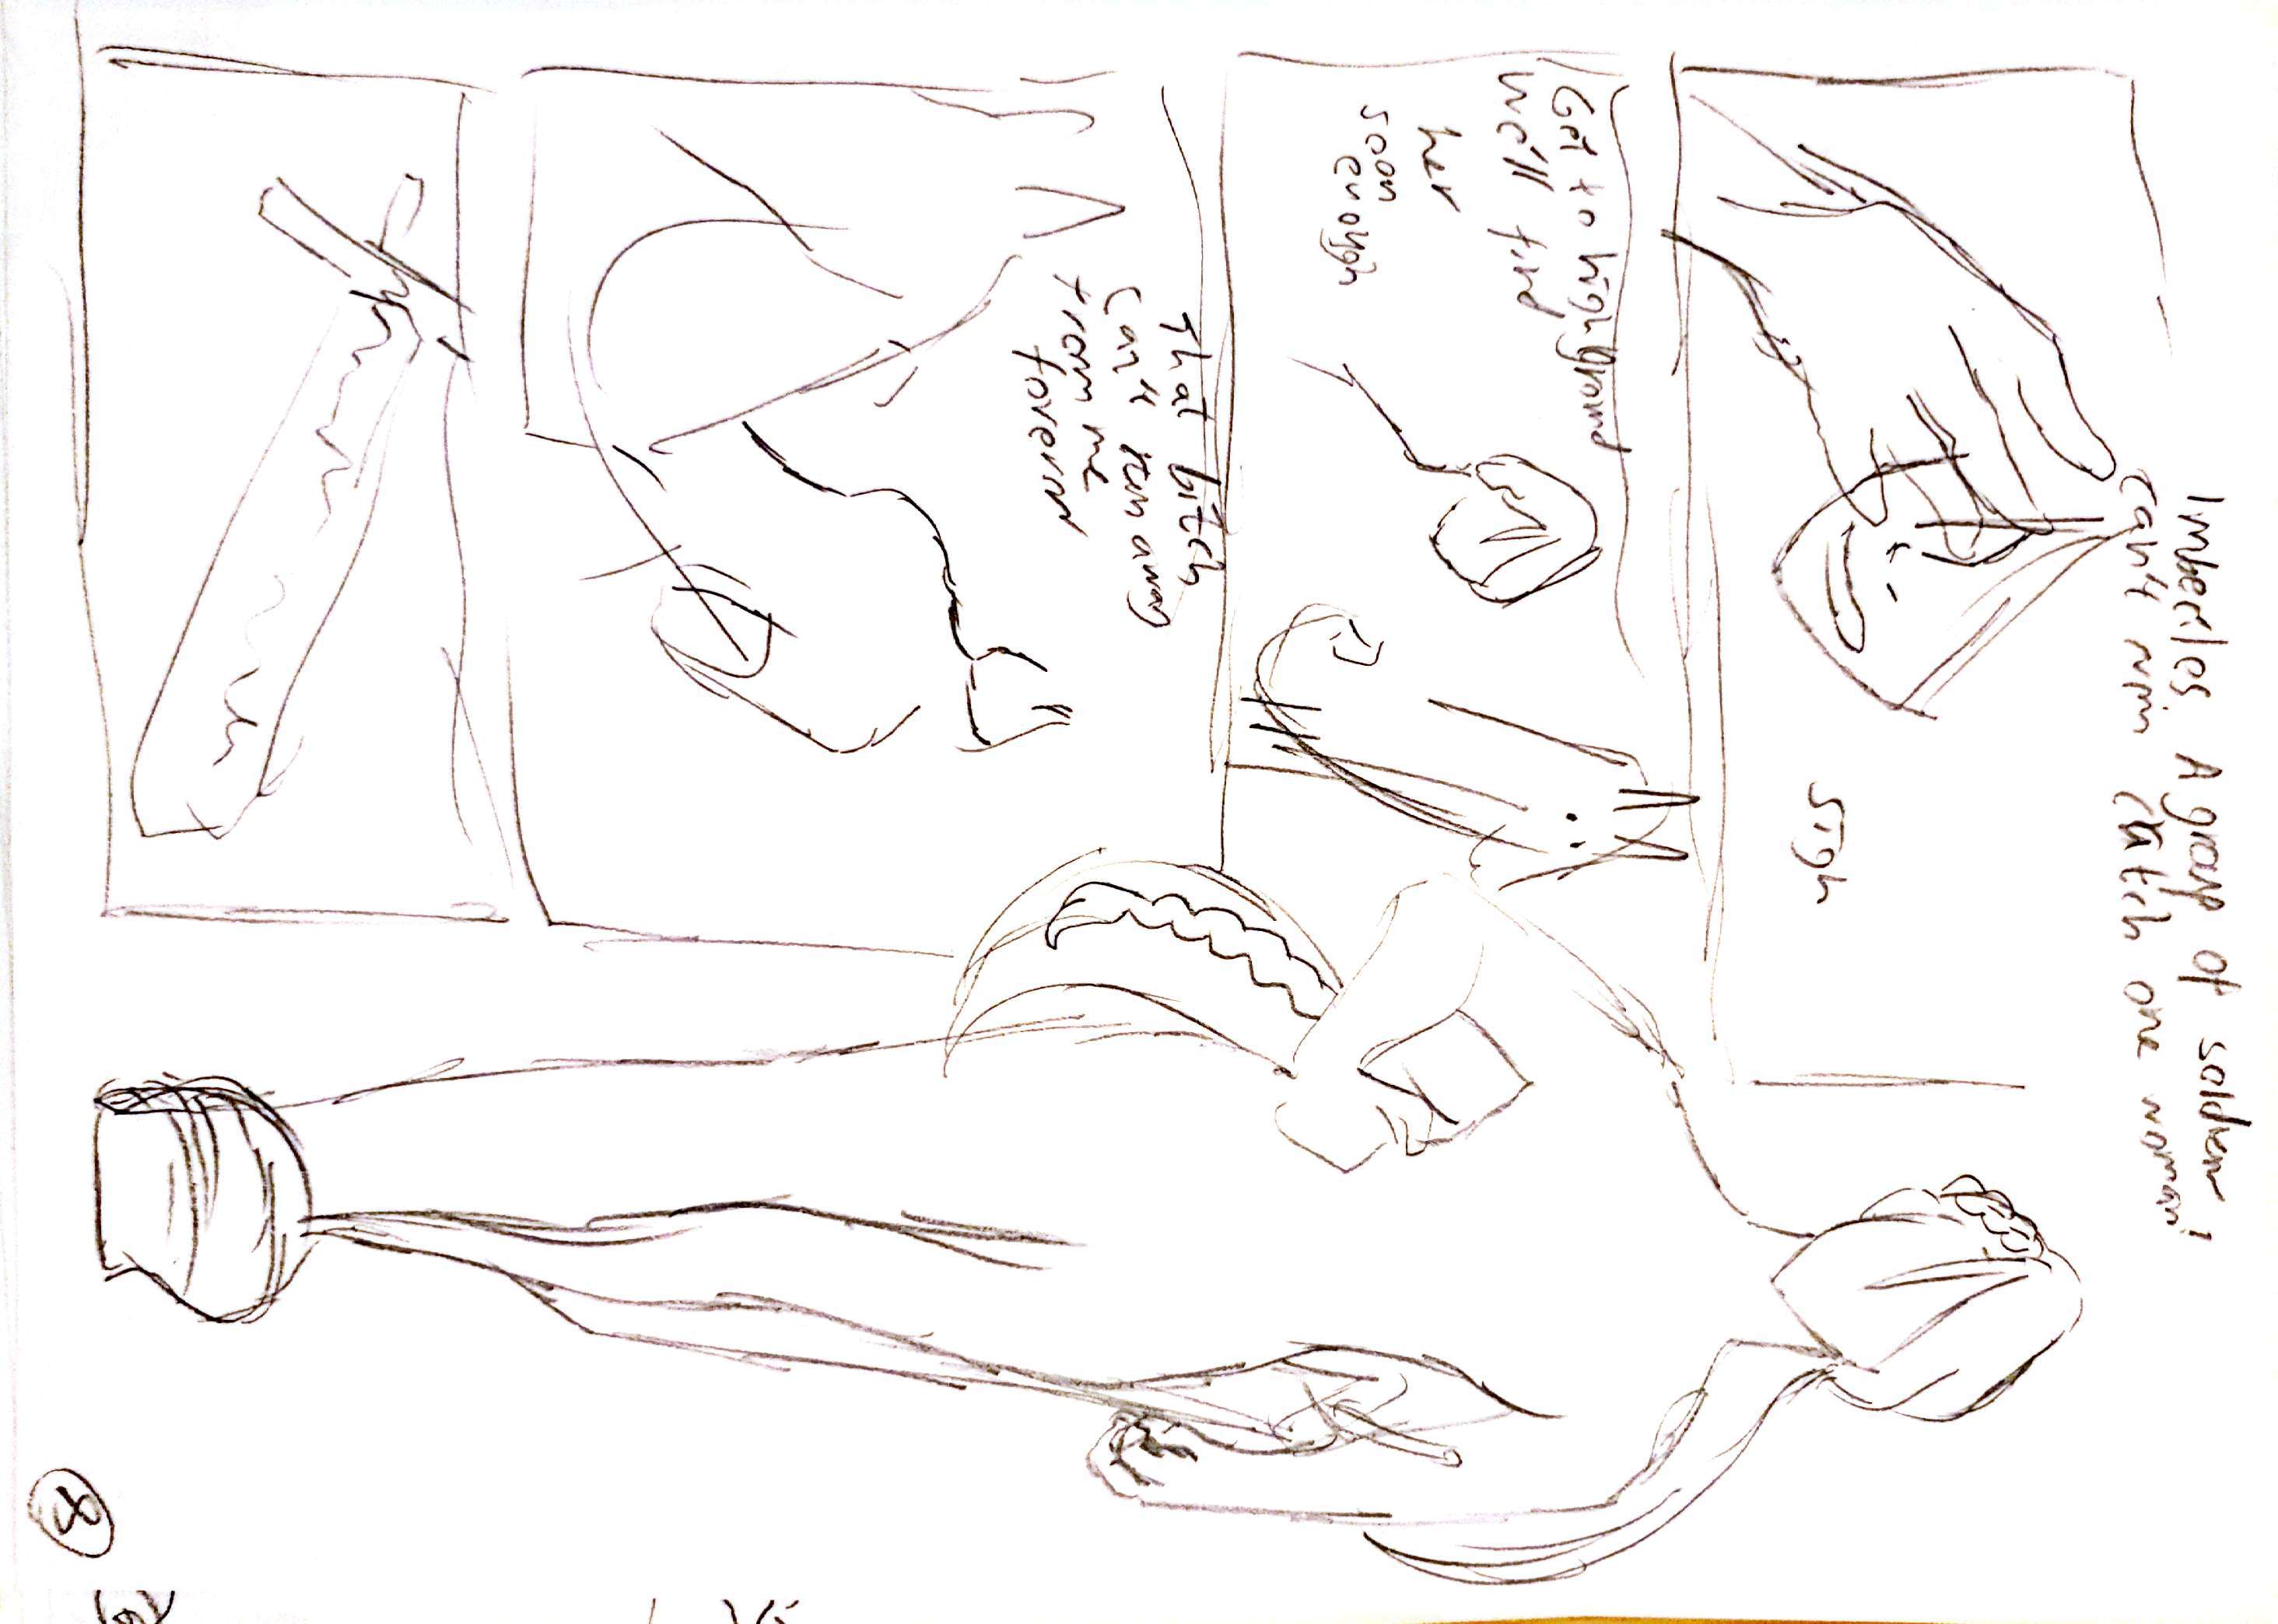 Imbeciles. A group of soldiers
can't catch one woman?
sigh
Get to high ground
We'll find
her
soon
enough
That bitch
can't run away
from me
forever
8